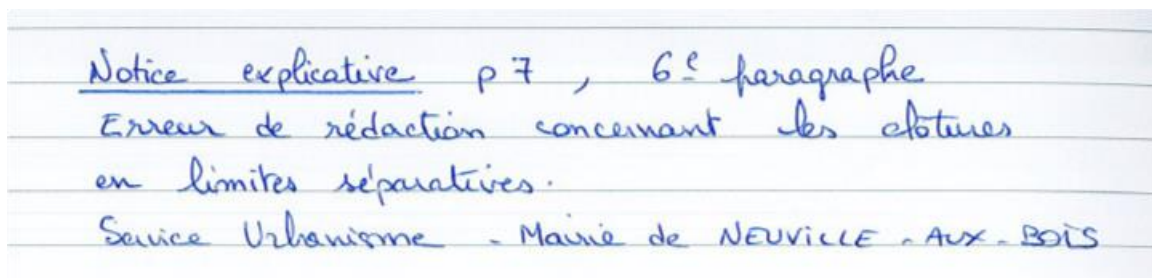 Notice explicative p 7, 6e paragraphe
Erreur de rédaction concernant les clôtures
en limites séparatives.
Service Urbanisme - Mairie de NEUVILLE-AUX-BOIS